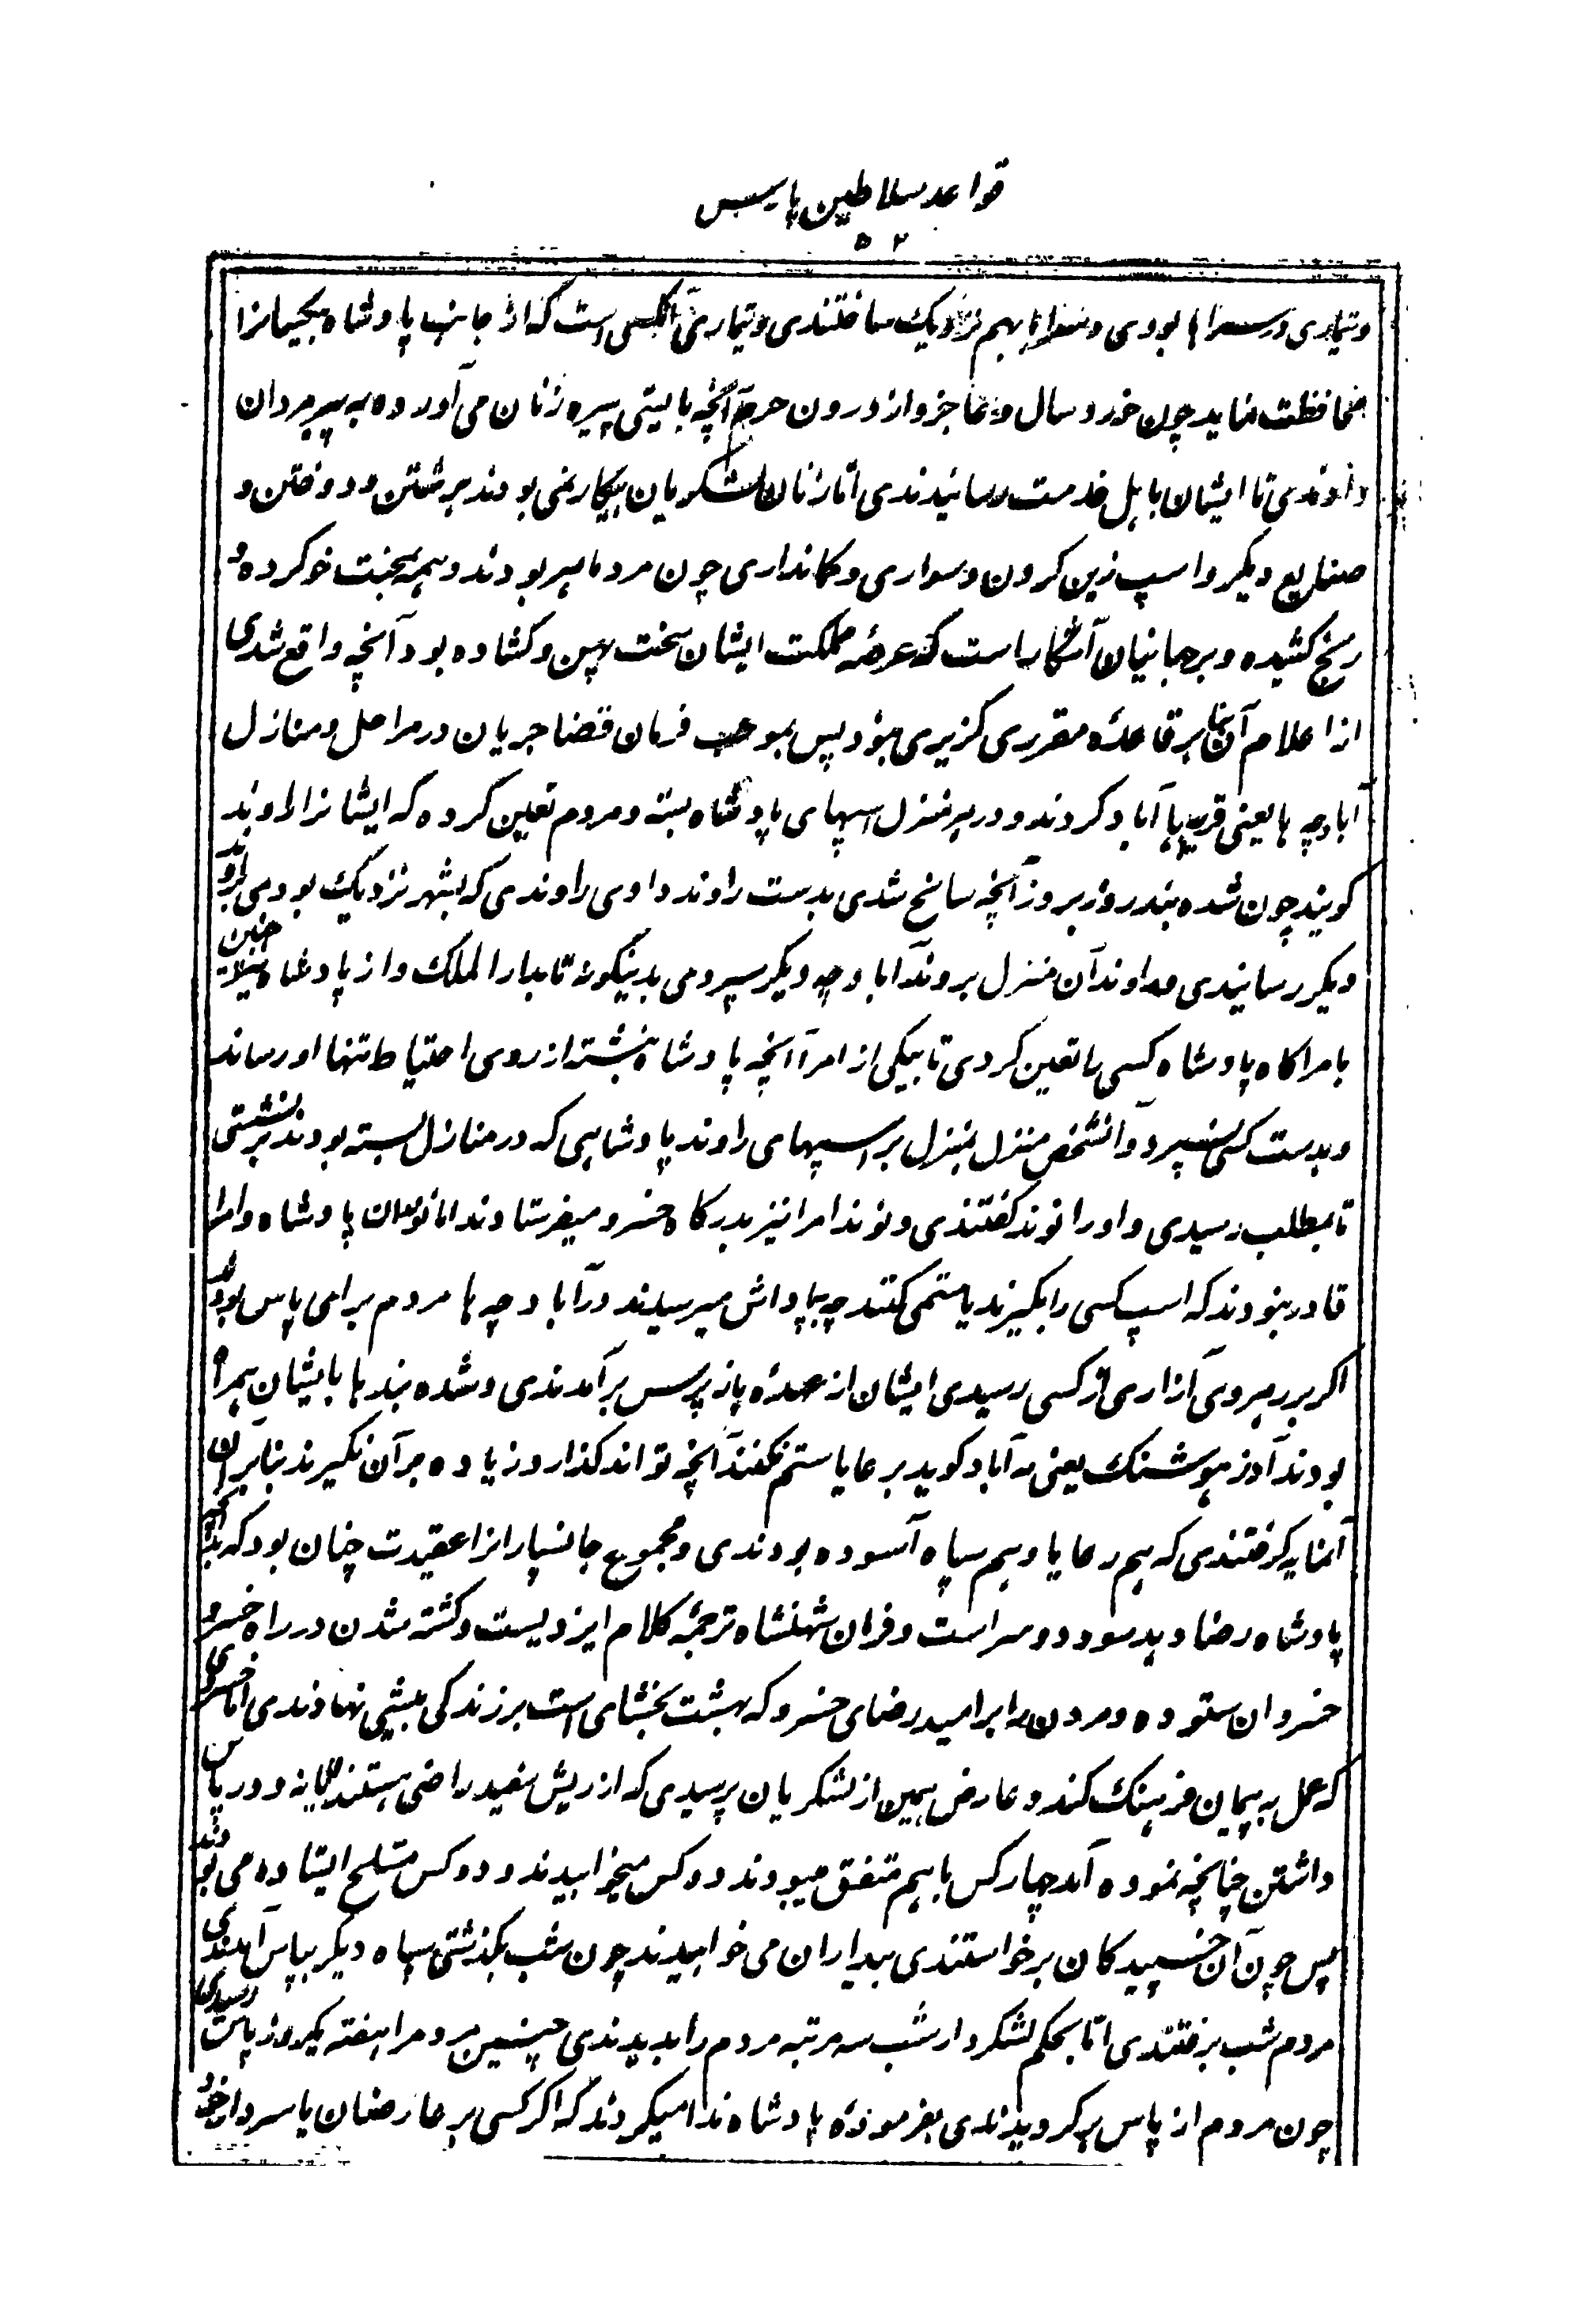 قواعد سلاطین پارس
۵۲
و تیماری در سراها بودی و سراها بهم نزدیک ساختندی و تیماری آنکسی است که از جانب پادشاه بیکسانرا
محافظت نماید چون خورد سال و عاجز و از درون حرم آنچه بایستی پیره زنان می آورده به پیر مردان
دادندی تا ایشان باهل خدمت رسانیدندی اما زنان لشکریان بیکار نمی بودند برشتن و دوختن و
صنایع دیکر و اسپ زین کردن و سواری و کمانداری چون مرد ماهر بودند و همه بمحنت خو کرده و
رنج کشیده و بر جهانیان آشکار است که عرصه مملکت ایشان سخت پهن و کشاده بود آنچه واقع شدی
از اعلام آن بنا بر قاعدهٔ مقرری کزیری نبود پس بموجب فرمان قضا جریان در مراحل و منازل
آبادچه ها یعنی قریه ها آباد کردند و در هر منزل اسپهای پادشاه بسته و مردم تعین کرده که ایشانرا راوند
کویند چون شده بند روز بروز آنچه سانح شدی بدست راوند دادی راوندی که بشهر نزدیک بودی براوند
دیکر رسانیدی و راوند آن منزل براوند آبادچه دیکر سپردی بدینکونه تا بدار الملک و از پادشاه نیز همچنین
بامرا کاه پادشاه کسی را تعین کردی تا بیکی از امرا آنچه پادشاه نبشته از روی احتیاط تنها او رساند
و بدست کسی نسپرد و آنشخص منزل بمنزل بر اسپهای راوند پادشاهی که در منازل بسته بودند بر نشستی
تا بمطلب رسیدی و او را نوند کفتندی و نوند امرا نیز بدرکاه خسرو میفرستادند اما نوندان پادشاه و امرا
قادر نبودند که اسپ کسی را بکیرند یا ستمی کنند چه بپاداش میرسیدند و در آبادچه ها مردم برای پاس بودند
اکر بر رهروی آزاری از کسی رسیدی ایشان از عهدهٔ باز پرس بر آمدندی و شده بندها با ایشان همراه
بودند آذر هوشنک یعنی مه آباد کوید بر رعایا ستم نکنند آنچه تواند کذارد زیاده بر آن نکیرند بنابر آن
آنمایه کرفتندی که هم رعایا و هم سپاه آسوده بودندی و مجموع جانسپارانرا عقیدت چنان بود که
پادشاه رضا دهد سود دو سراست و فرمان شهنشاه ترجمهٔ کلام ایزدیست و کشته شدن در راه خسرو
خسروان ستوده و مردن را بر امید رضای خسرو که بهشت بخشای است بر زندکی بیشی نهادندی اما خسروی
که عمل به پیمان فرهنک کند و عارض بهمین از لشکریان پرسیدی که از ریش سفید راضی هستند یا نه و در پاس
داشتن چنانچه نموده آمد چهار کس باهم متفق میبودند دو کس میخوابیدند و دو کس مسلح ایستاده می بودند
پس چون آن خسپیدکان برخواستندی بیداران می خوابیدند چون شب بکذشتی سپاه دیکر بپاس آمدندی
مردم شب برفتندی اما بحکم لشکردار شب سه مرتبه مردم را بدیدندی همچنین مردم را هفته یکروز پاس رسیدی
چون مردم از پاس بر کردیدندی بفرمودهٔ پادشاه ندا میکردند که اکر کسی بر عارضان یا سردار خود